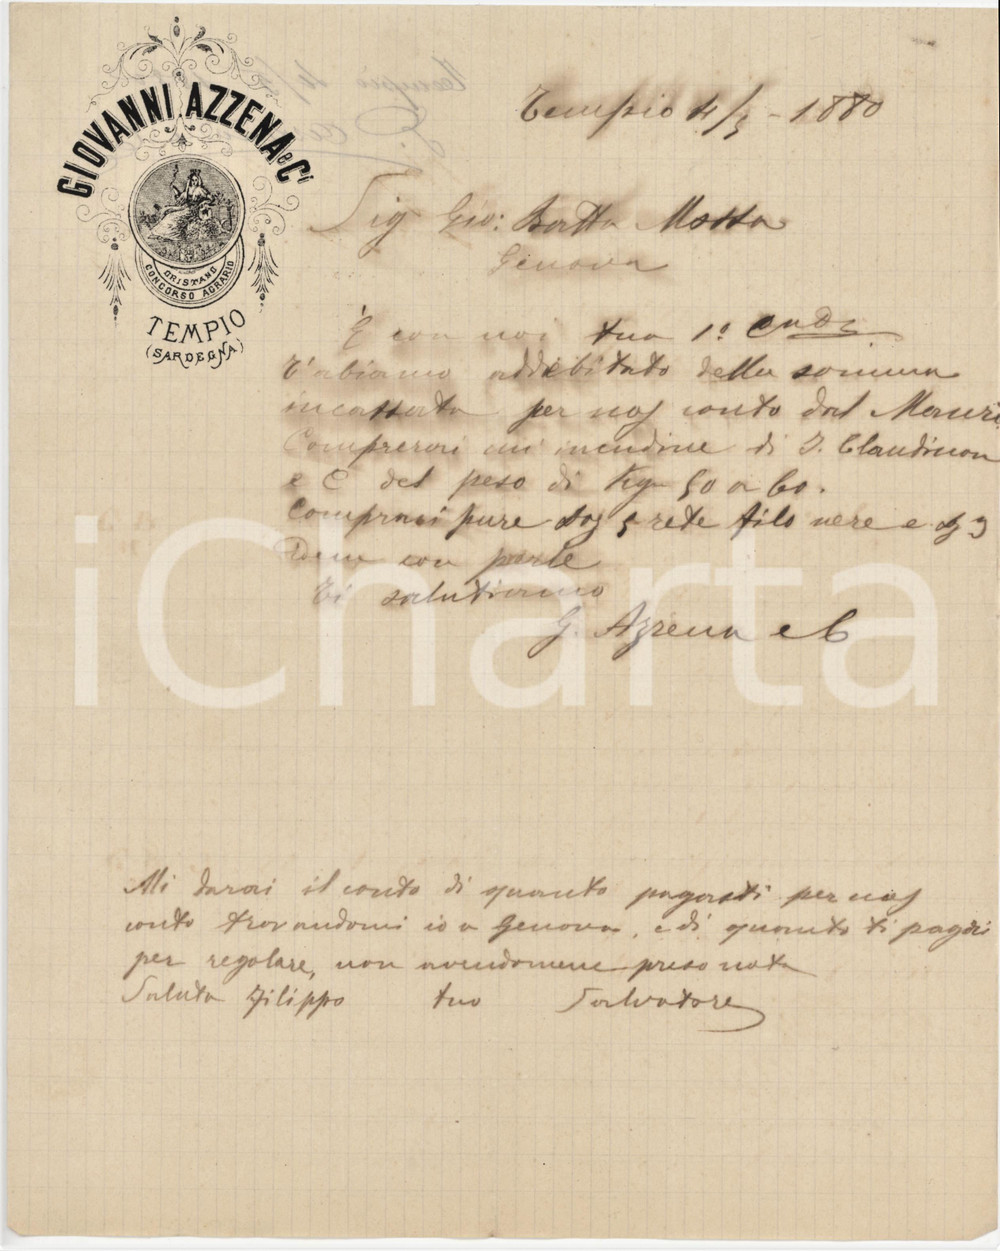 GIOVANNI AZZENA e Ci
ORISTANO
CONCORSO AGRARIO
TEMPIO
(SARDEGNA)
Tempio 4/3 - 1880
Sig Gio: Batta Motta
Genova
È con noi tua 1º andte
T'abiamo addebitato della somma
incassata per nos conto dal
Comprerai un incudine di J. Claudinon
e C del peso di Kg 50 a 60.
Comprasi pure doz 5 rete filo nere e dz 3
con perle
Ti salutiamo
G. Azzena e C
Mi darai il conto di quanto pagasti per nos
conto trovandomi io a Genova, e di quanto ti pagai
per regolare, non avendomene preso nota
Saluta Filippo tuo Salvatore
iCharta